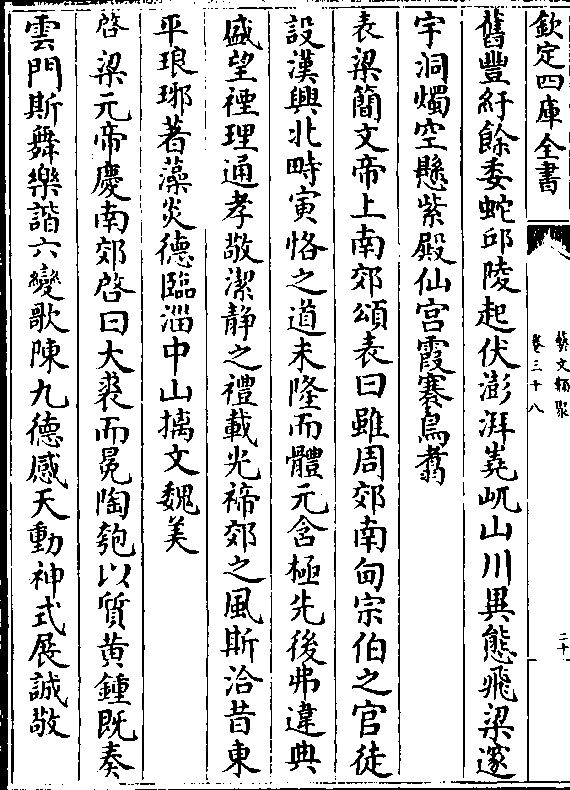 欽定四庫全書
藝文類聚
卷三十八
二十
舊豐紆餘委蛇邱陵起伏澎湃嶤屼山川異態飛梁邃
宇洞燭空懸紫殿仙宫霞騫鳥翥
表梁簡文帝上南郊頌表曰雖周郊南甸宗伯之官徒
設漢興北畤寅恪之道未隆而體元含極先後弗違典
盛望禋理通孝敬潔静之禮載光禘郊之風斯洽昔東
平琅琊著藻炎德臨淄中山摛文魏美
啓梁元帝慶南郊啓曰大裘而冕陶匏以質黄鍾既奏
雲門斯舞樂諧六變歌陳九德感天動神式展誠敬